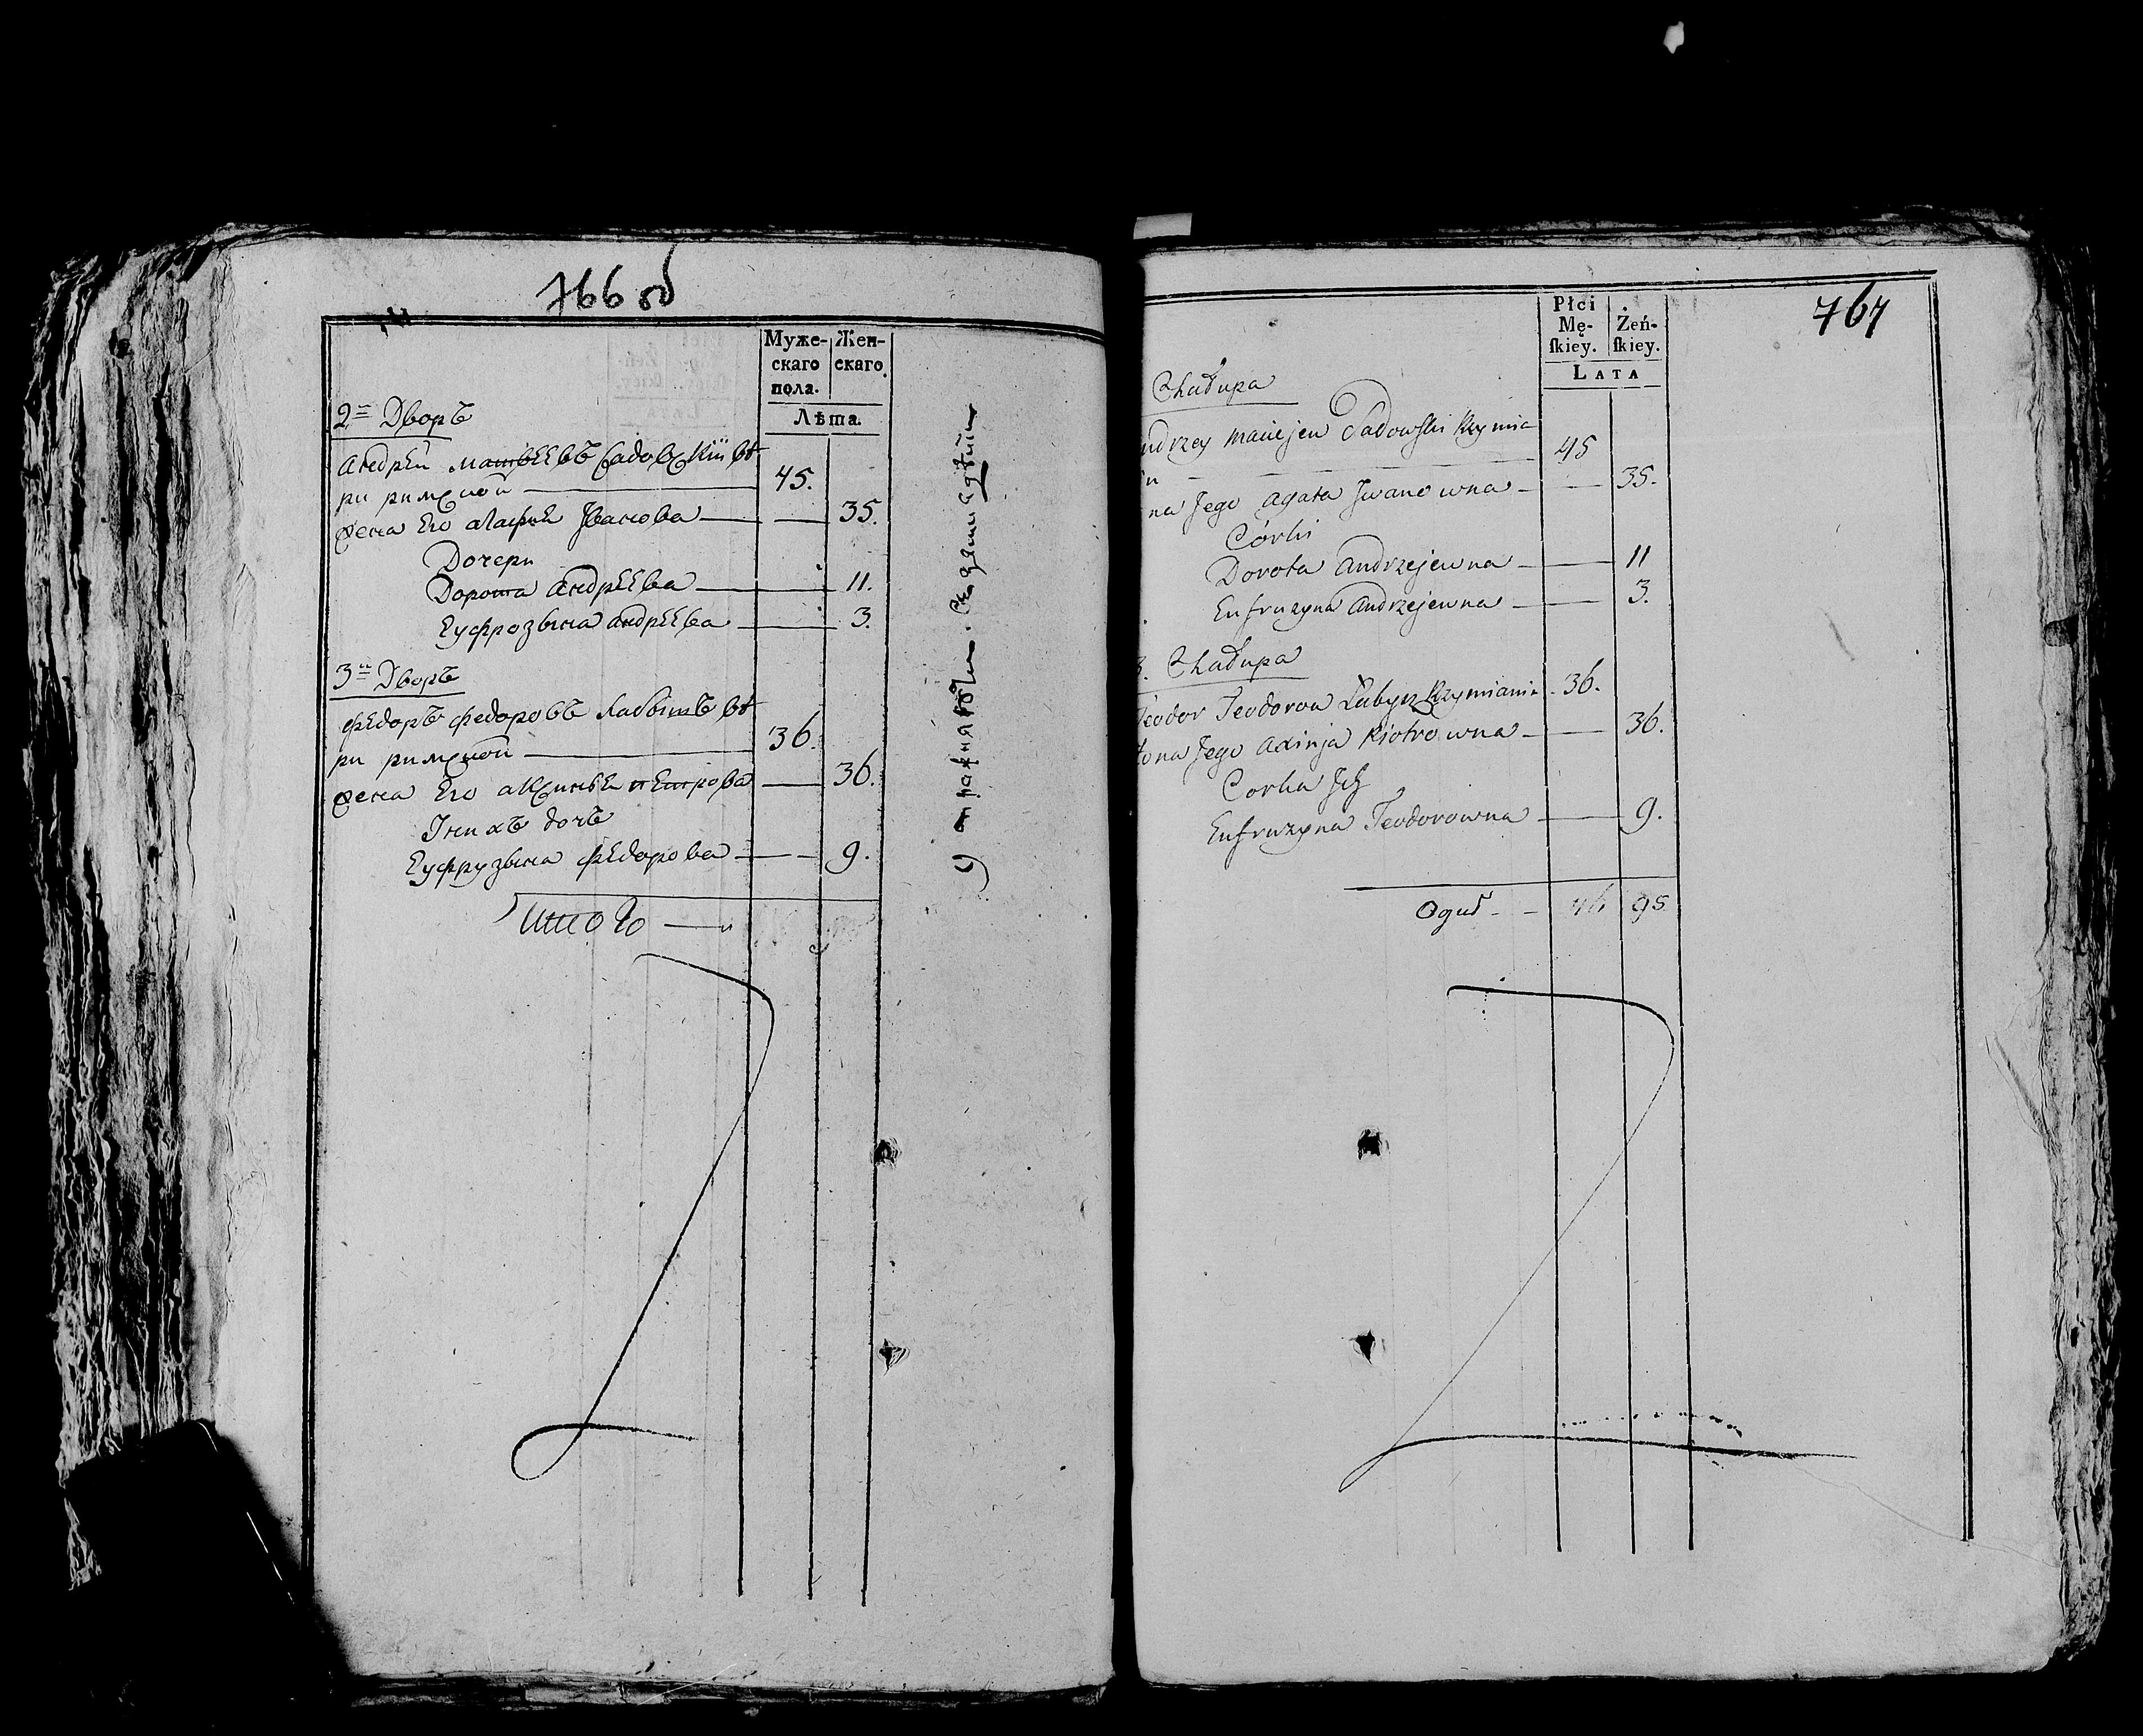 766 об
Муже-
скаго
пола.
Жен-
скаго
Лѣта.
2й Дворъ
Андрей Матвеевъ Садовский вѣ
ры римской 45.
Жена Его Агафия Иванова 35.
Дочери
Дорота Андреева 11.
Еуфрозына Андреева 3.
3й Дворъ
Федоръ Федоровъ вѣ
ры римской 36.
Жена Его Аксинья Петрова 36.
Ихъ дочь
Еуфрузына Федорова 9.
Итого
767
Płci
Mę-
ſkiey.
Żeń-
ſkiey.
LATA
Chałupa
ndrzey Maciejew Sadowski Rzymia
n 45
na Jego Agata Jwanowna 35.
Córki
Dorota Andrzejewna 11
Eufruzyna Andrzejewna 3.
3. Chałupa
Teodor Teodorow Rzymianin 36.
żona Jego Axinja Piotrowna 36.
Corka Jch
Eufruzyna Teodorowna 9.
Oguł 95